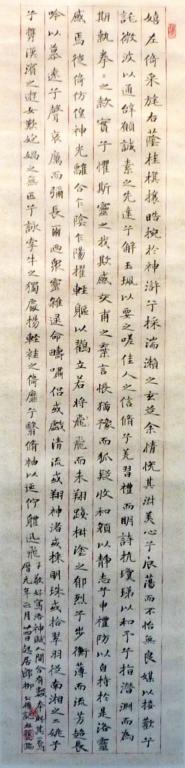 嬉左倚采旄右蔭桂旗攘皓捥於神滸兮採湍瀨之玄芝余情恱其淑美心兮振蕩而不怡無良媒以接歡兮
託微波以通辭願誠素之先達兮解玉珮以要之嗟佳人之信脩兮羌習禮而明詩抗瓊珶以和予兮指潛淵而為
期執拳拳之款實兮懼斯靈之我欺感交甫之棄言悵猶豫而狐疑收和顏以靜志兮申禮防以自持於是洛靈
感焉徙倚仿偟神光離合乍陰乍陽擢輕軀以鶴立若將飛而未翔踐椒塗之郁烈兮步衡薄而流芳超長
吟以慕遠兮聲哀厲而彌長爾迺衆靈雜遝命疇嘯侶或戲清流或翔神渚或採明珠或拾翠羽從南湘之二姚
兮攜漢濱之遊女歎匏媧之無匹兮詠牽牛之獨處揚輕袿之倚靡兮翳脩袖以延佇體迅飛
子敬好寫洛神賦人間合有數本此其一焉
曆元年正月廿四日起居郎柳